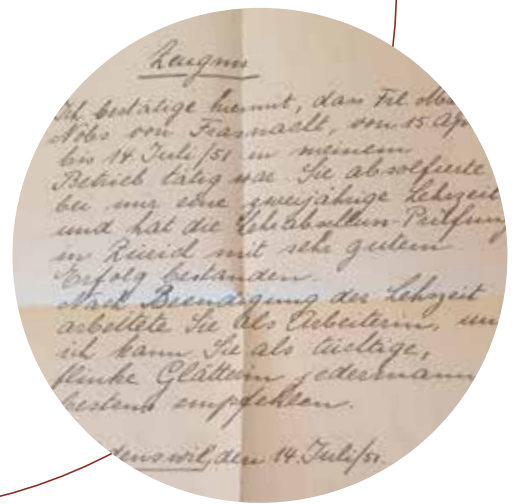 Zeugnis
Ich bestätige hiermit, dass Frl.
Nobs von Frasnacht, von 15. Apr
bis 14 Juli/51 in meinem
Betrieb tätig war. Sie absolfierte
bei mir eine zweijährige Lehrzeit
und hat die Lehrabschluss-Prüfung
in Zürich mit sehr gutem
Erfolg bestanden.
Nach Beendigung der Lehrzeit
arbeitete Sie als Arbeiterin, un
ich kann Sie als tüchtige,
flinke Glätterin jedermann
bestens empfehlen.
denswil, den 14. Juli/51.